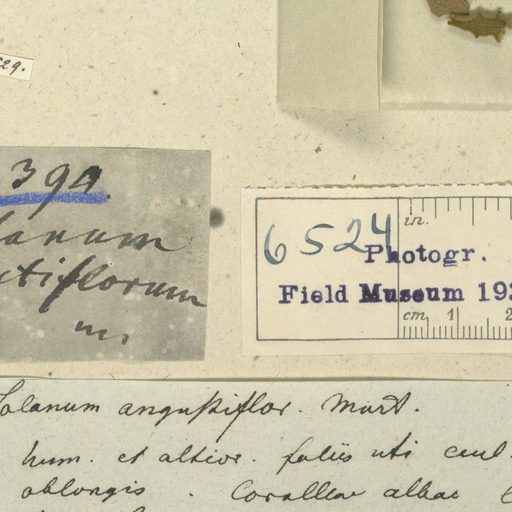 29.
394.
lanum
tiflorum
m
6524
in.
Photogr.
Field Museum 193
cm. 1 2
Solanum angustiflor. Mart.
hum. et altior. foliis uti caul.
oblongis . Corollae albae